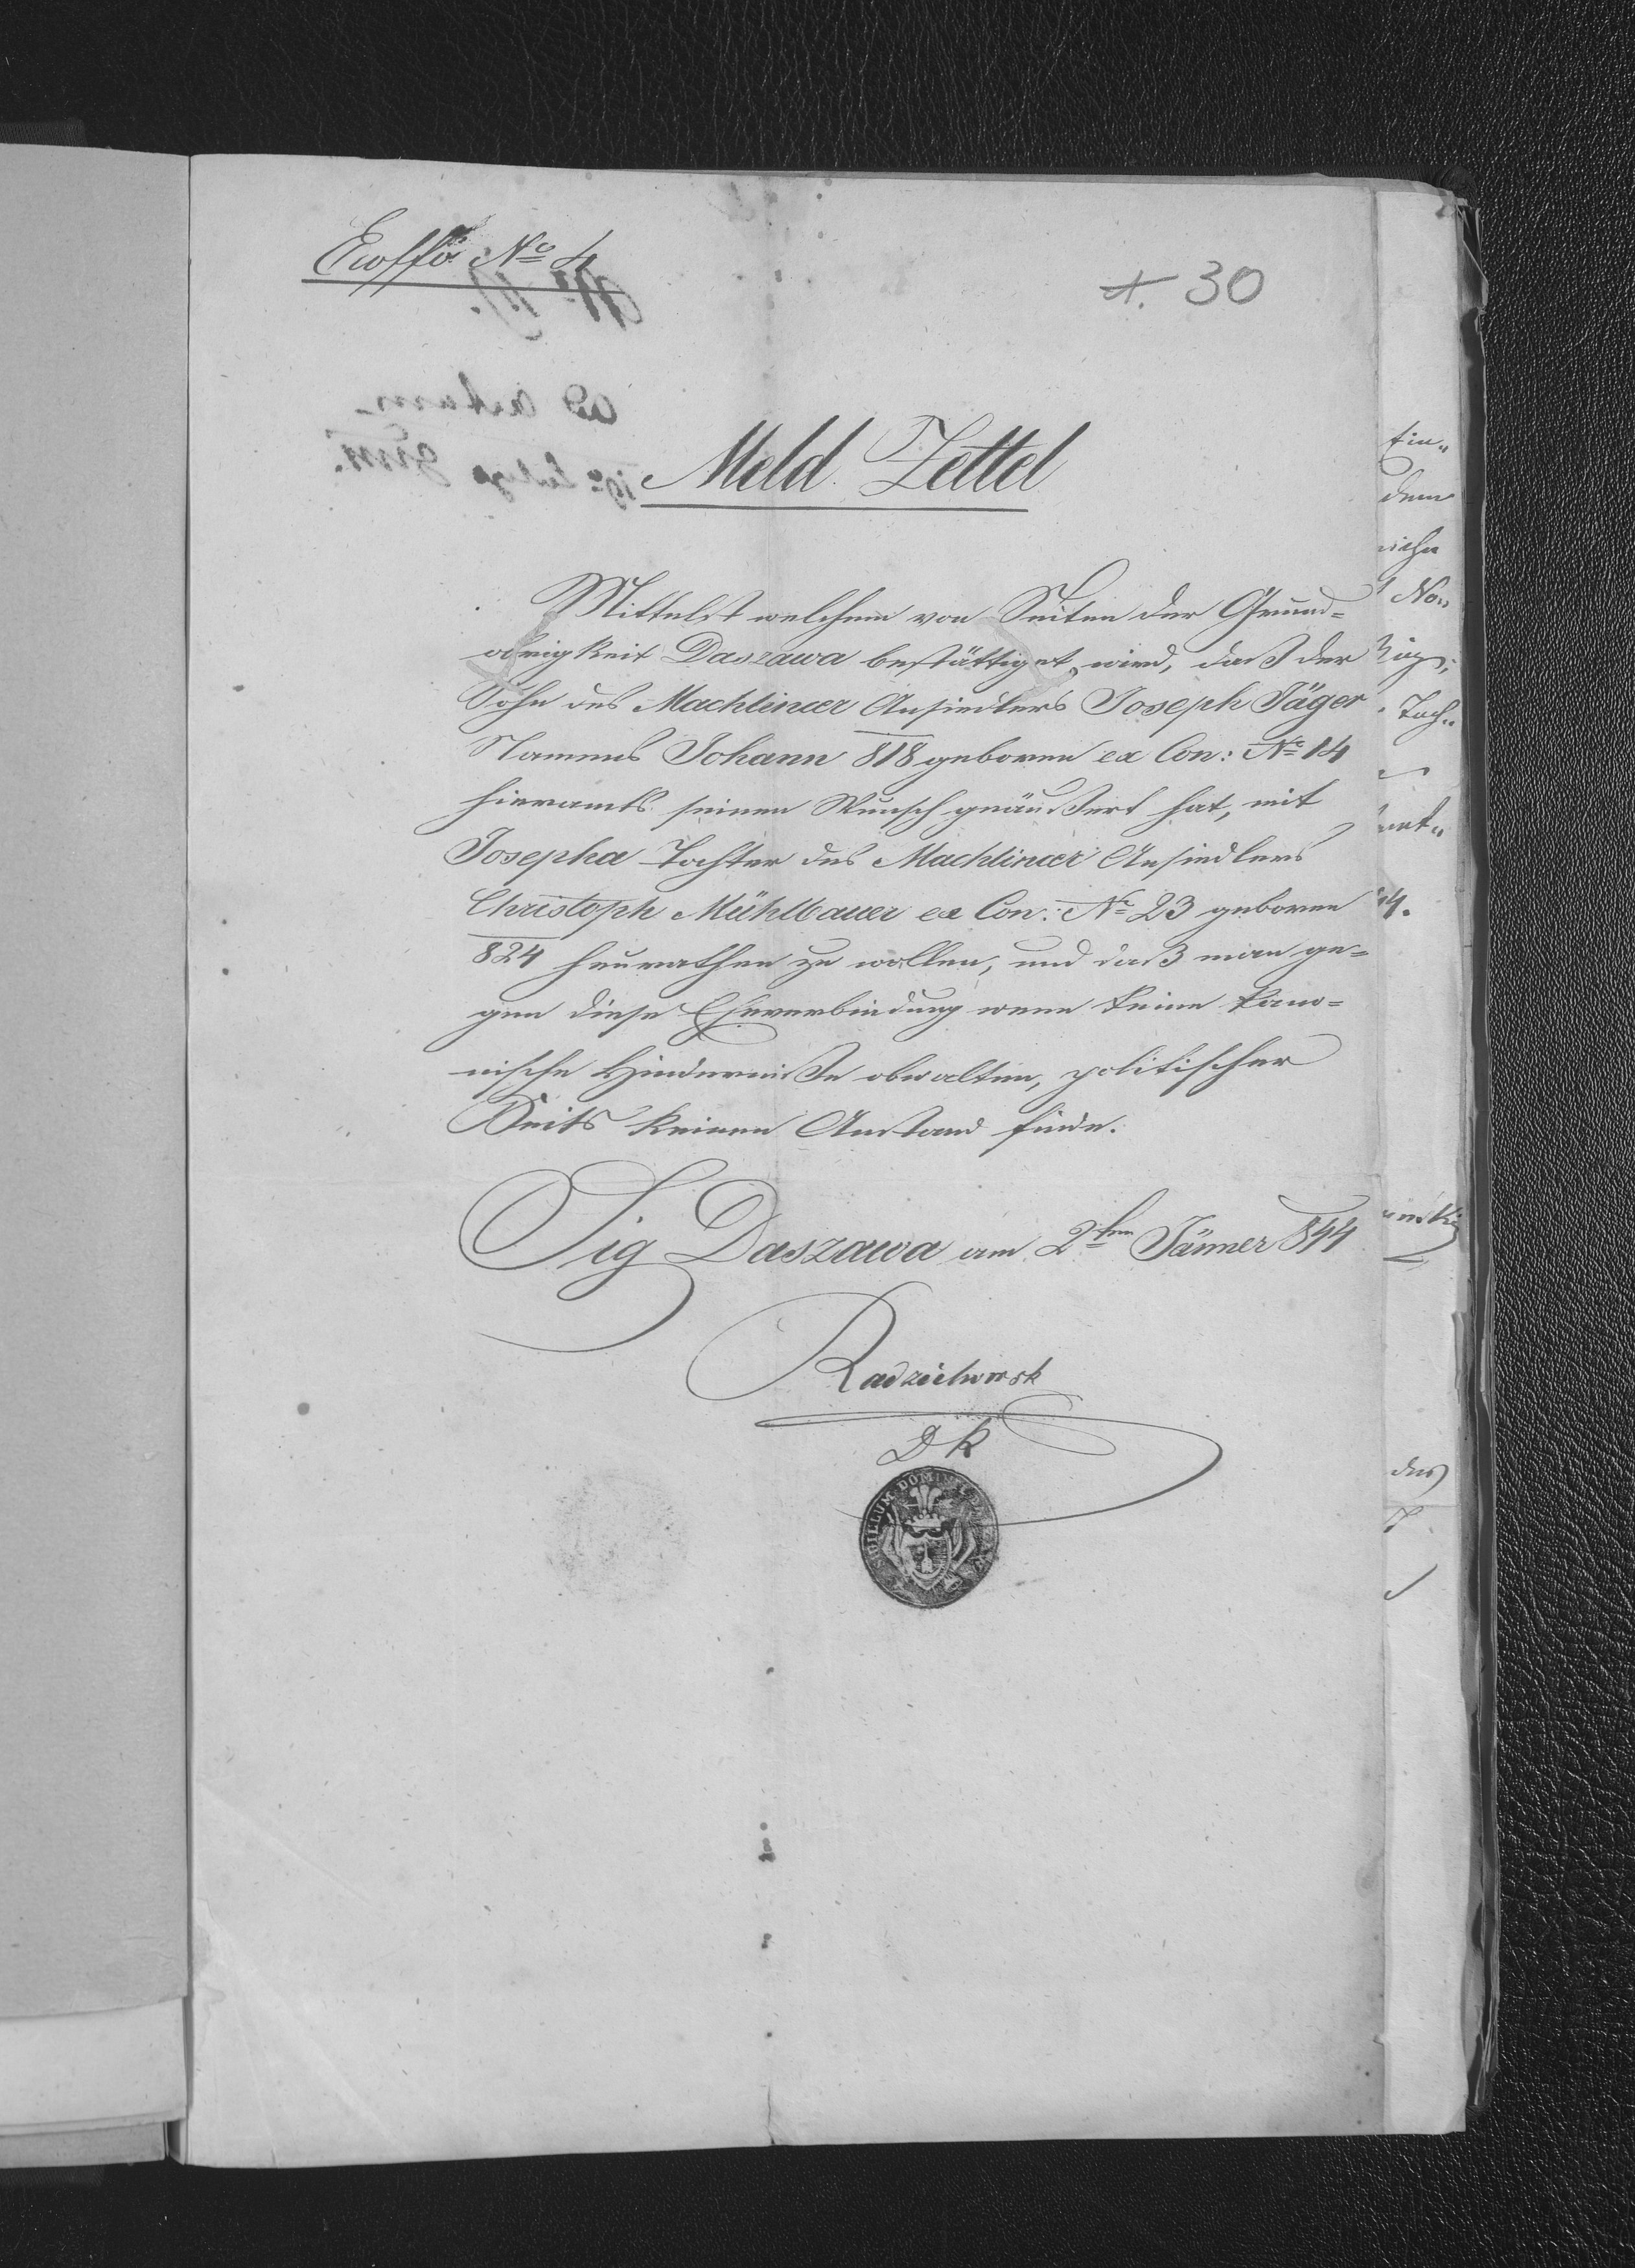 Exoffo No 4
30
Meld Zettel
Mittelst welchem von Seiten der Grund=
obrigkeit Daszawa bestättiget wird, daß der
Sohn des Machlincer Ansiedlers Joseph Jäger
Namens Johann 818 geboren ex Con: No 14
hieramts seinen Wunsch geäußert hat, mit
Josepha Tochter des Machlincer Ansiedlers
Christoph Mühlbauer ex Con: No 23 geboren
824 heurathen zu wollen, und daß man ge=
gen diese Eheverbindung wenn keine kano=
nische Hinderniße obwalten, politischer
Seits keinen Anstand finde.
Sig Daszawa am 2ten Jänner 844
DR
SIGILLUM DOMINII
Ein„
dem
No„
Toch„
des